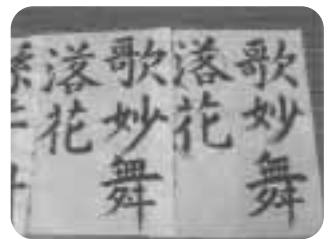 歌妙舞
落花
歌妙舞
落花